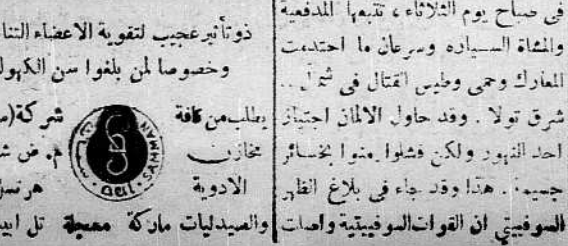 فى صباح يوم الثلاثاء ، تتبعها المدفعية
والمشاة السيارة وسرعان ما احتدمت
المعارك وحمى وطيس القتال فى شمال ..
شرق تولا . وقد حاول الالمان اجتياز
احد النهور ولكن فشلوا ومنوا بخسائر
جسيمة . هذا وقد جاء فى بلاغ الظهر
السوفييتي ان القوات السوفييتية واصلت
ذو تأثير عجيب لتقوية الاعضاء
وخصوصا لمن بلغوا سن
يطلب من كافة
مخازن
الادوية
والصيدليات ماركة مسجلة
SAMMAN
شركة
م. ض
تل